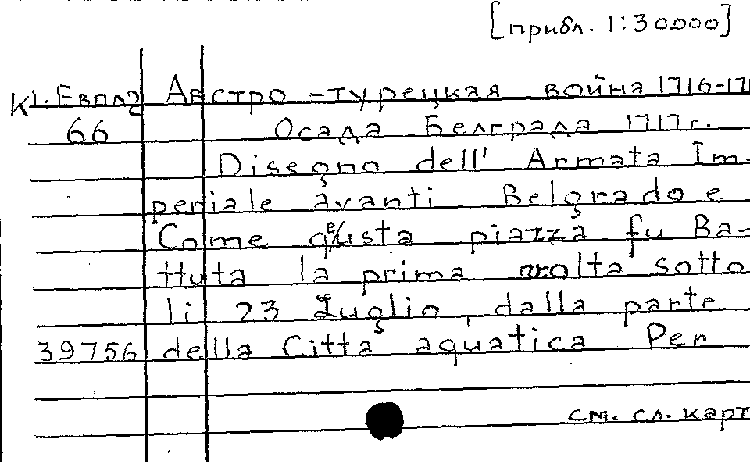 [прибл. 1:30000]
К1. Евпл2 Австро-турецкая война 1716-171
66 Осада Белграда 1717г.
Disegno dell' Armata Im-
periale avanti Belgrado e
Come questa piazza fu Ba-
ttuta la prima volta sotto
li 23 Luglio, dalla parte
39756 della Citta aquatica Per
см. сл. карт